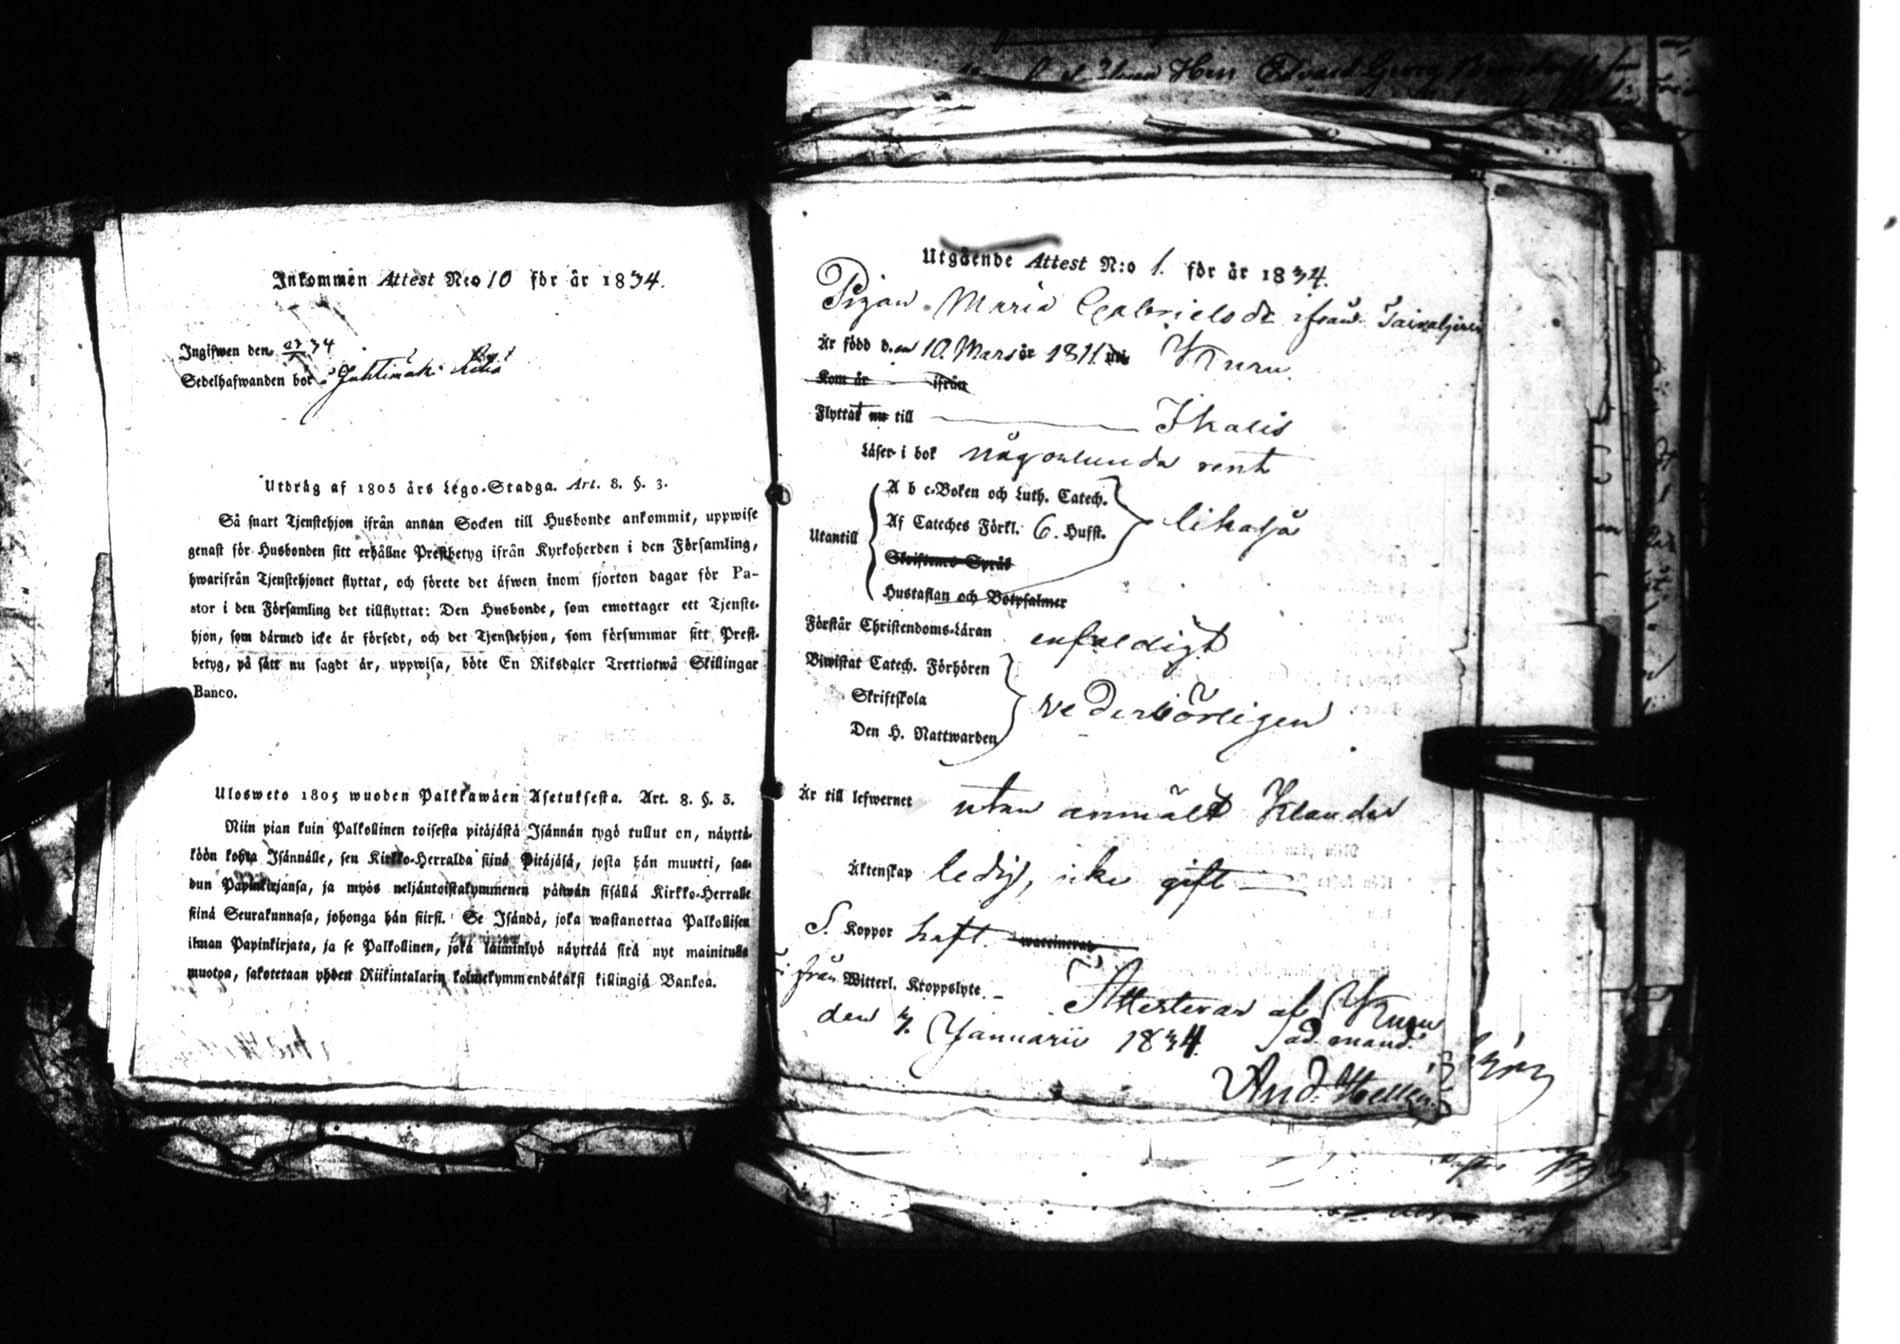 Inkommen Attest N:o 10 för år 1834.
Ingifwen den 34
Sedelhafwanden bor
Utdrag af 1805 års Lego-Stadga. Art. 8. §. 3.
Så snart Tjenstehjon ifrån annan Socken till Husbonde ankommit, uppwise
genast för Husbonden sitt erhållne Prestbetyg ifrån Kyrkoherden i den Församling,
hwarifrån Tjenstehjonet flyttat, och förete det äfwen inom fjorton dagar för Pa-
stor i den Församling det tillflyttat: Den Husbonde, som emottager ett Tjenste-
hjon, som därmed icke är försedt, och det Tjenstehjon, som försummar sitt Prest-
betyg, på sätt nu sagdt är, uppwisa, böte En Riksdaler Trettiotwå Skillingar
Banco.
Ulosweto 1805 wuoden Palkkawäen Asetuksesta. Art. 8. §. 3.
Niin pian kuin Palkollinen toisesta pitäjästä Isännän tygö tullut on, näyttä-
köön kohta Isännälle, sen Kirkko-Herralda siinä Pitäjäsä, josta hän muutti, saa-
dun Papinkirjansa, ja myös neljäntoistakymmenen päiwän sisällä Kirkko-Herralle
siinä Seurakunnasa, johonga hän siirsi. Se Isändä, joka wastanottaa Palkollisen
ilman Papinkirjata, ja se Palkollinen, joka laiminlyö näyttää sitä nyt mainitulla
muotoa, sakotetaan yhden Riikintalarin kolmekymmendäkaksi killingiä Bankoa.
Utgående Attest N:o 1. för år 1834.
Pigan Maria Gabrielsdr ifrån
Är född den 10. Mars år 1811. uti Kuru.
Kom år ifrån
Flyttat nu till Ikalis
Läser i bok någorlunda rent
A b c-Boken och Luth. Catech.
Af Cateches Förkl. 6. Hufst. likaså
Utantill
Skriftenes Språk
Hustaflan och Botpsalmer
Förstår Christendoms-Läran enfaldigt
Biwistat Catech. Förhören
Skriftskola vederbörligen
Den H. Nattwarden
Är till lefwernet utan anmält Klander
Äktenskap ledig, icke gift
S. Koppor haft. waccinerad
från Witterl. Kroppslyte. Attesterar af Kuru
den 7. Januarii 1834. ad mand.
And. Hellén